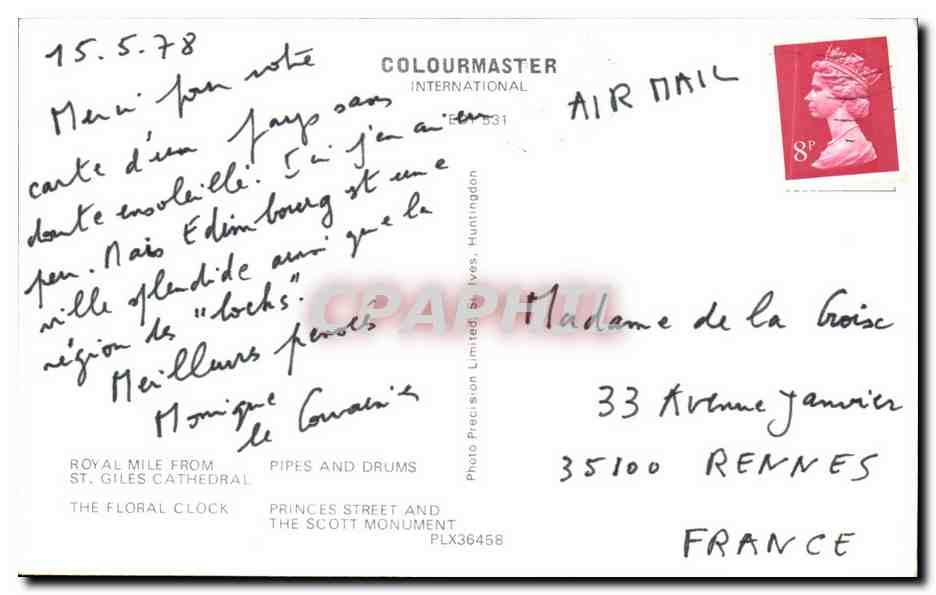 15.5.78
Merci pour votre
carte d'un pays sans
doute ensoleillé. Ici j'en ai eu
peu. Mais Edimbourg est une
ville splendide ainsi que la
région des "lochs".
Meilleurs pensées
Monique
le
COLOURMASTER
INTERNATIONAL
531
AIR MAIL
8P
Photo Precision Limited, St. Ives, Huntingdon
CPAPHIL
Madame de la Croix
33 Avenue Janvier
35100 RENNES
FRANCE
ROYAL MILE FROM
ST. GILES CATHEDRAL
PIPES AND DRUMS
THE FLORAL CLOCK
PRINCES STREET AND
THE SCOTT MONUMENT
PLX36458